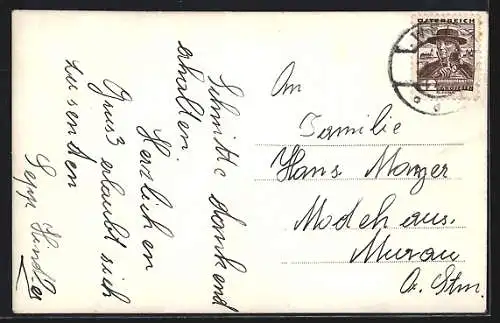 Schnitte dankend
erhalten.
Herzlichen
Gruss erlaubt sich
zu senden
Sepp
ÖSTERREICH
An
Familie
Hans Manger
Murau